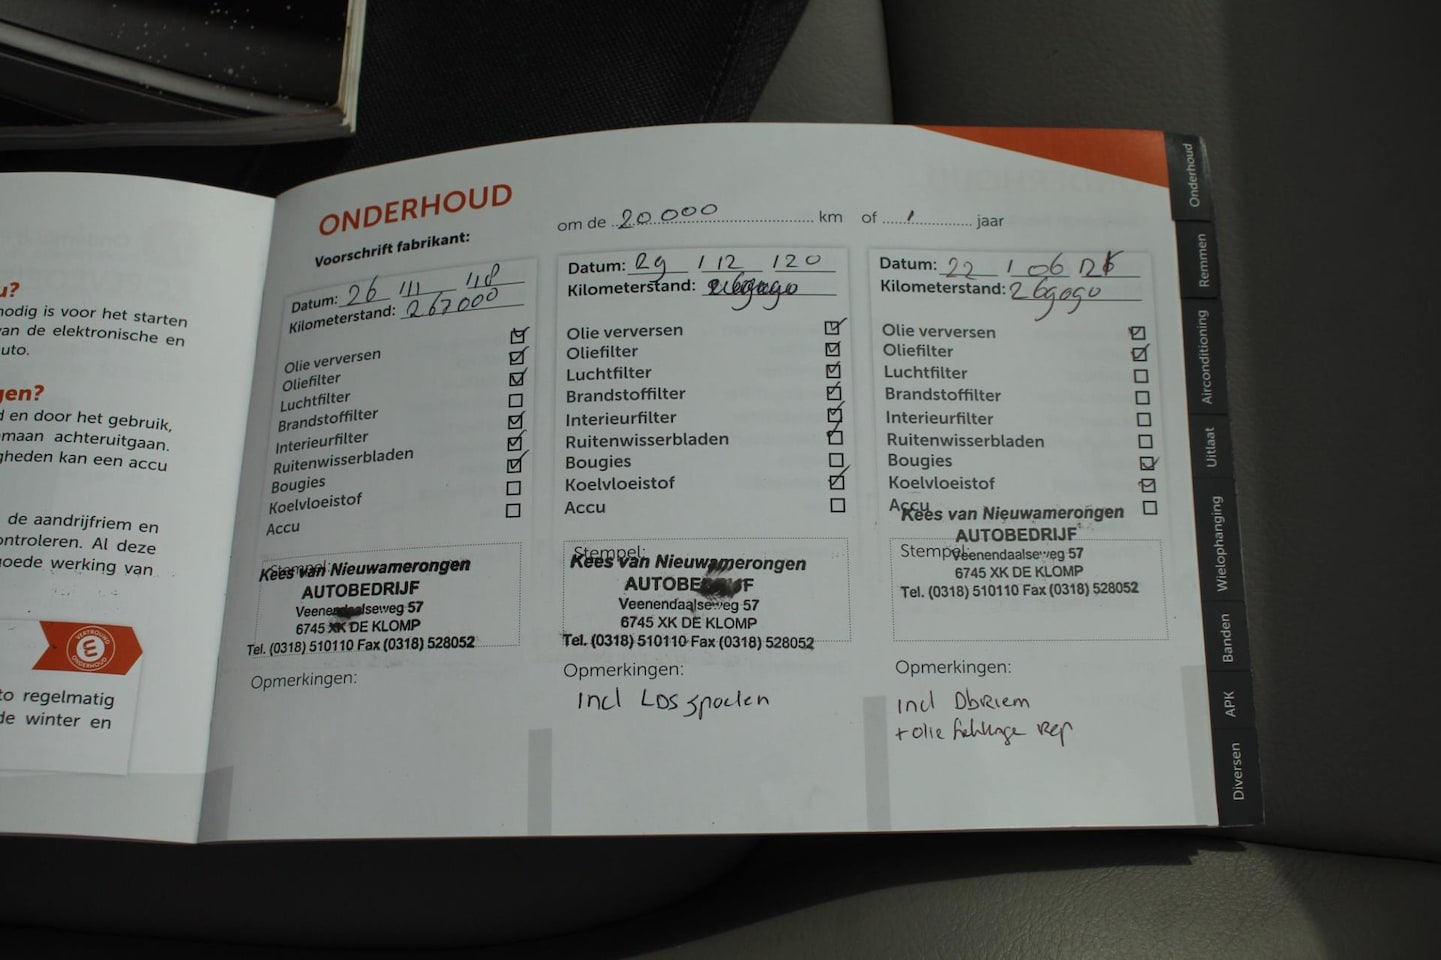 u?
nodig is voor het starten
van de elektronische en
uto.
gen?
d en door het gebruik,
maan achteruitgaan.
gheden kan een accu
de aandrijfriem en
ontroleren. Al deze
oede werking van
VERTROUWD
ONDERHOUD
to regelmatig
de winter en
ONDERHOUD
Voorschrift fabrikant:
om de 20.000 km of 1 jaar
Datum: 26 / 11 / 18
Kilometerstand: 267000
Olie verversen
Oliefilter
Luchtfilter
Brandstoffilter
Interieurfilter
Ruitenwisserbladen
Bougies
Koelvloeistof
Accu
Stempel:
Kees van Nieuwamerongen
AUTOBEDRIJF
Veenendaalseweg 57
6745 XK DE KLOMP
Tel. (0318) 510110 Fax (0318) 528052
Opmerkingen:
Datum: 29 / 12 / 20
Kilometerstand:
Olie verversen
Oliefilter
Luchtfilter
Brandstoffilter
Interieurfilter
Ruitenwisserbladen
Bougies
Koelvloeistof
Accu
Stempel:
Kees van Nieuwamerongen
AUTOBEDRIJF
Veenendaalseweg 57
6745 XK DE KLOMP
Tel. (0318) 510110 Fax (0318) 528052
Opmerkingen:
incl LDS spoelen
Datum: 22 / 06
Kilometerstand: 269090
Olie verversen
Oliefilter
Luchtfilter
Brandstoffilter
Interieurfilter
Ruitenwisserbladen
Bougies
Koelvloeistof
Accu
Stempel:
Kees van Nieuwamerongen
AUTOBEDRIJF
Veenendaalseweg 57
6745 XK DE KLOMP
Tel. (0318) 510110 Fax (0318) 528052
Opmerkingen:
incl Dbriem
+ olie rep
Onderhoud
Remmen
Airconditioning
Uitlaat
Wielophanging
Banden
APK
Diversen